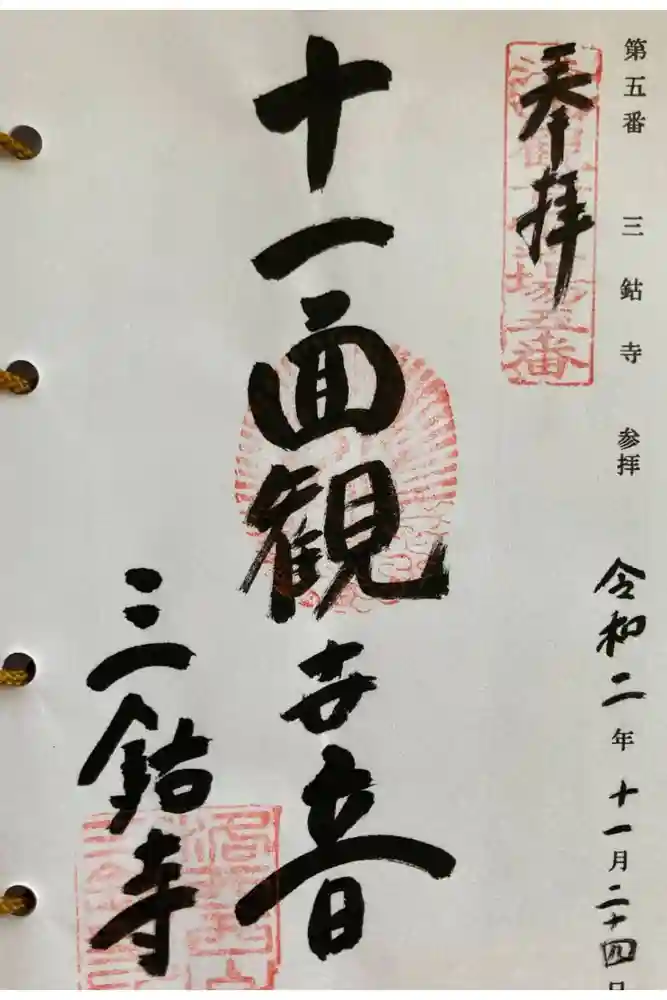 第五番 三鈷寺 参拝 令和二年十一月二十四日
奉拝
十一面観世音
三鈷寺